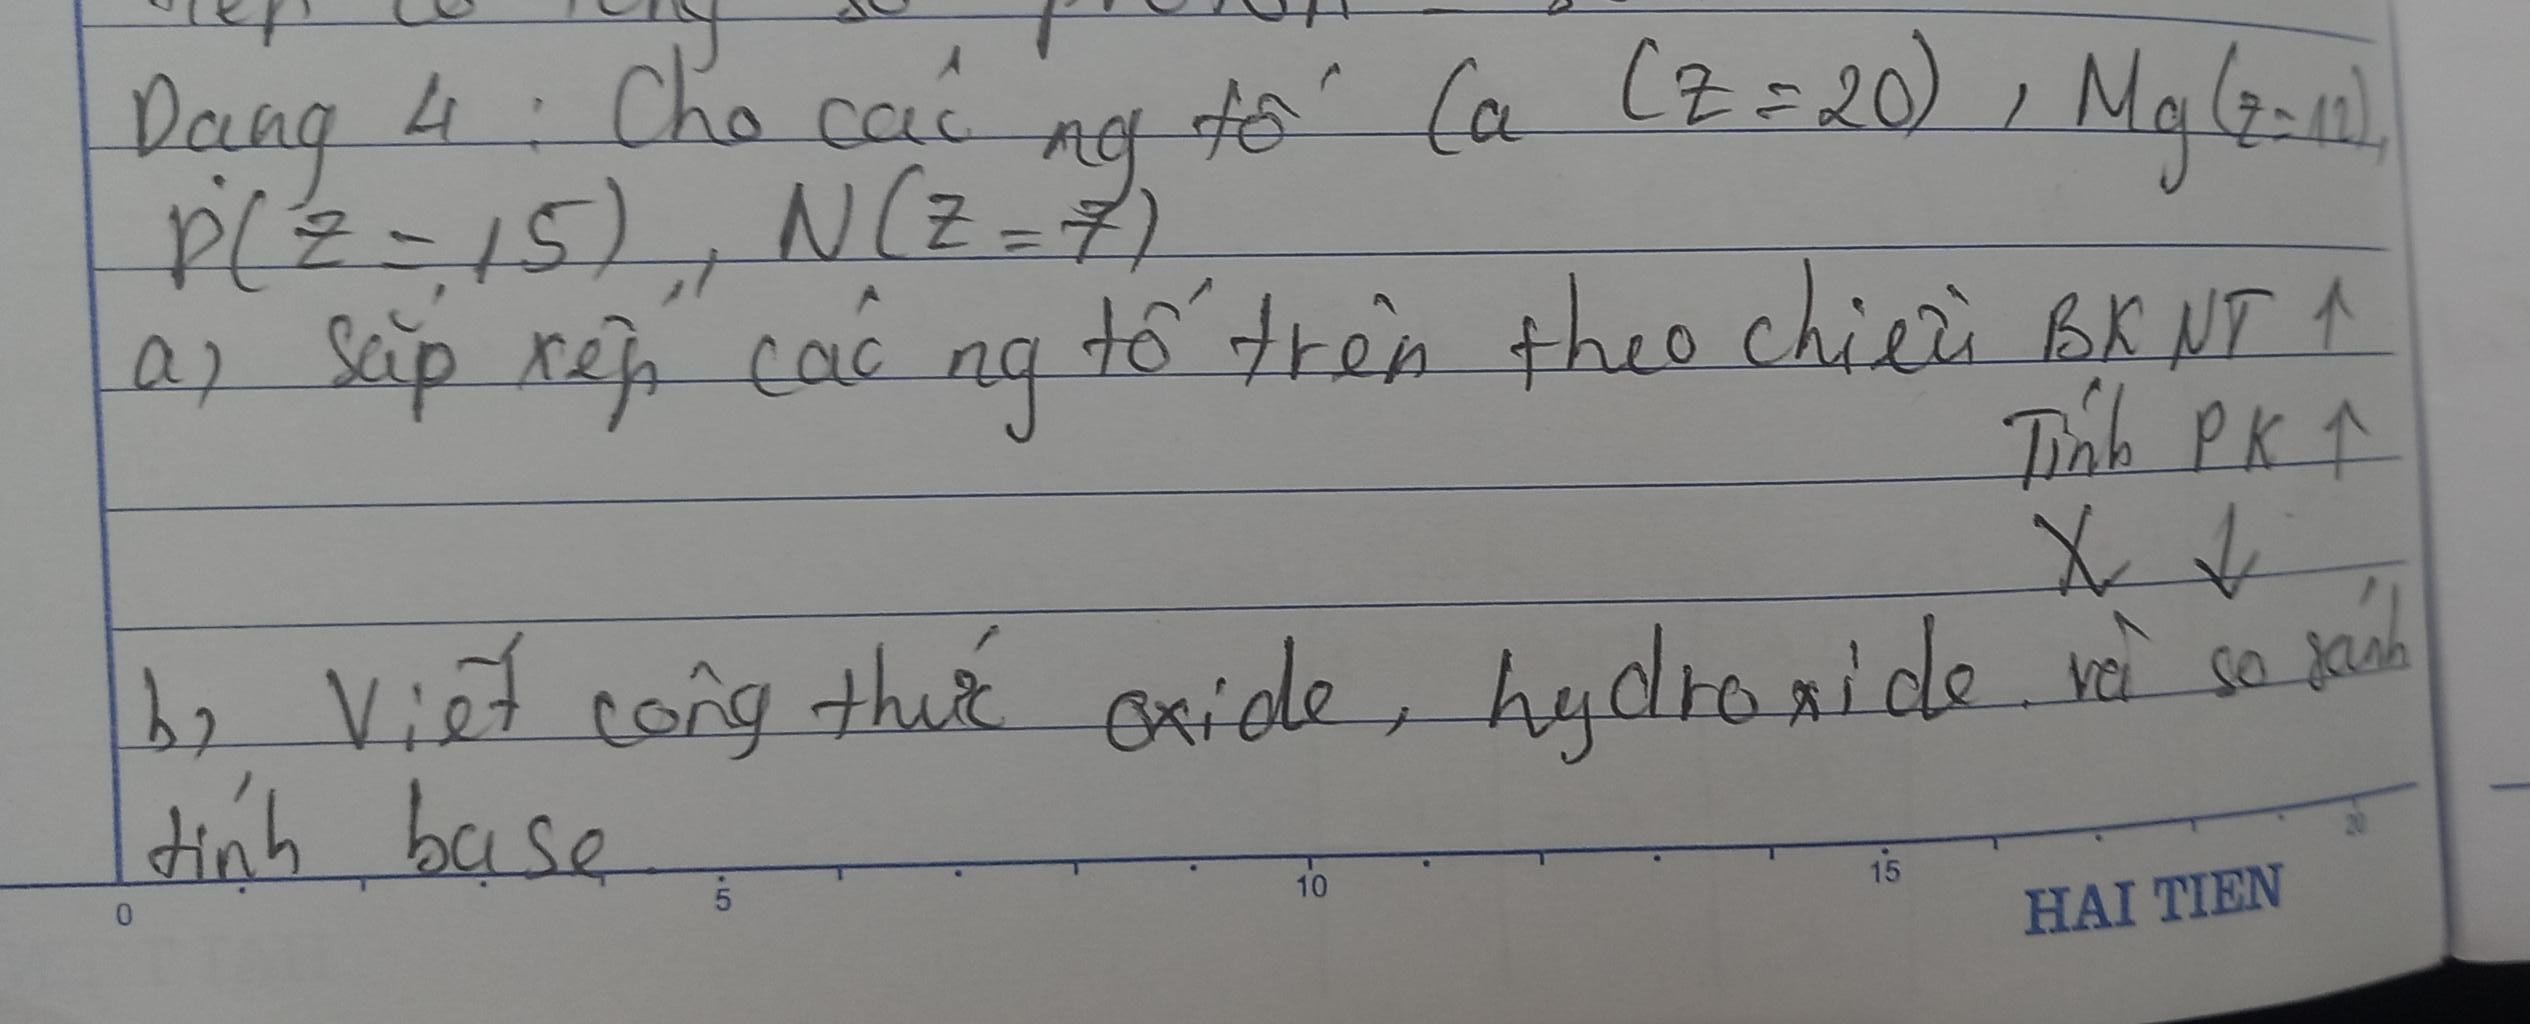 Dạng 4 : Cho các ng tố Ca (Z = 20), Mg (Z = 12),
P (Z = 15), N (Z = 7)
a) Sắp xếp các ng tố trên theo chiều BK NT ↑
Tính PK ↑
X ↓
b) Viết công thức oxide, hydroxide. và so sánh
tính base
0 5 10 15 20
HAI TIEN